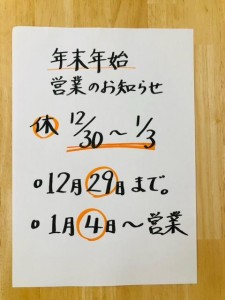 年末年始
営業のお知らせ
休 12/30～1/3
○12月29日まで。
○1月4日～営業